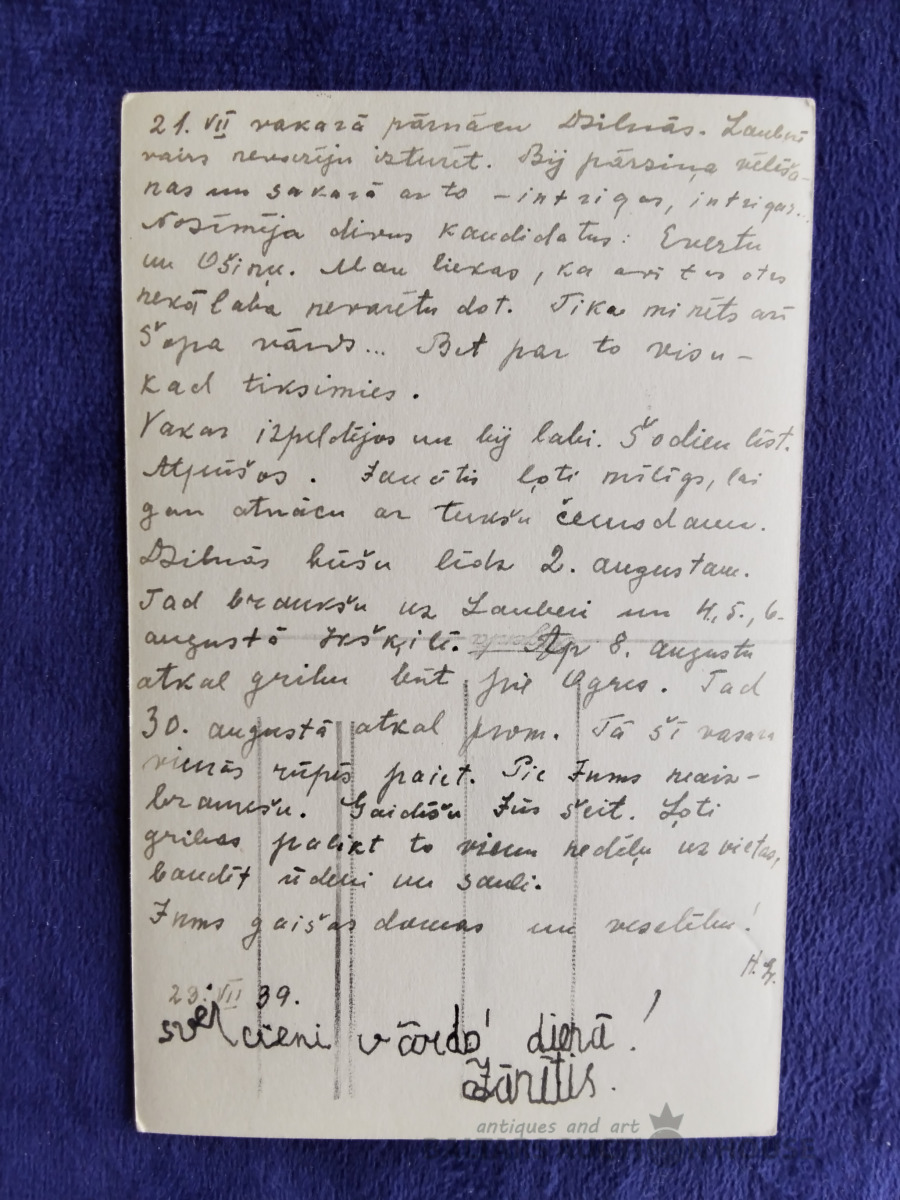 21. VII vakarā pārnācu Dzilnās. Lauberē
vairs nevarēju izturēt. Bij pārziņa vēlēša-
nas un sakarā ar to – intrigas, intrigas...
Nozīmēja divus kandidatus: Evertu
un Ošiņu. Man liekas, ka arī tas otrs
nekā laba nevarētu dot. Tika minēts arī
Šopa vārds... Bet par to visu –
kad tiksimies.
Vakar izpeldējos un bij labi. Šodien līst.
Atpūšos. Janītis ļoti mīlīgs, lai
gan atnācu ar tukšu čemodanu.
Dzilnās būšu līdz 2. augustam.
Tad braukšu uz Lauberi un 4., 5., 6.
augustā Ikšķilē. Ap 8. augustu
atkal gribu būt pie Ogres. Tad
30. augustā atkal prom. Tā šī vasara
vienās rūpēs paiet. Pie Jums neaiz-
braukšu. Gaidīšu Jūs šeit. Ļoti
gribas palikt to vienu nedēļu uz vietas,
baudīt ūdeni un sauli.
Jums gaišas domas un veselību!
23. VII 39.
sveicieni vārdo dienā!
Jānītis.
antiques and art